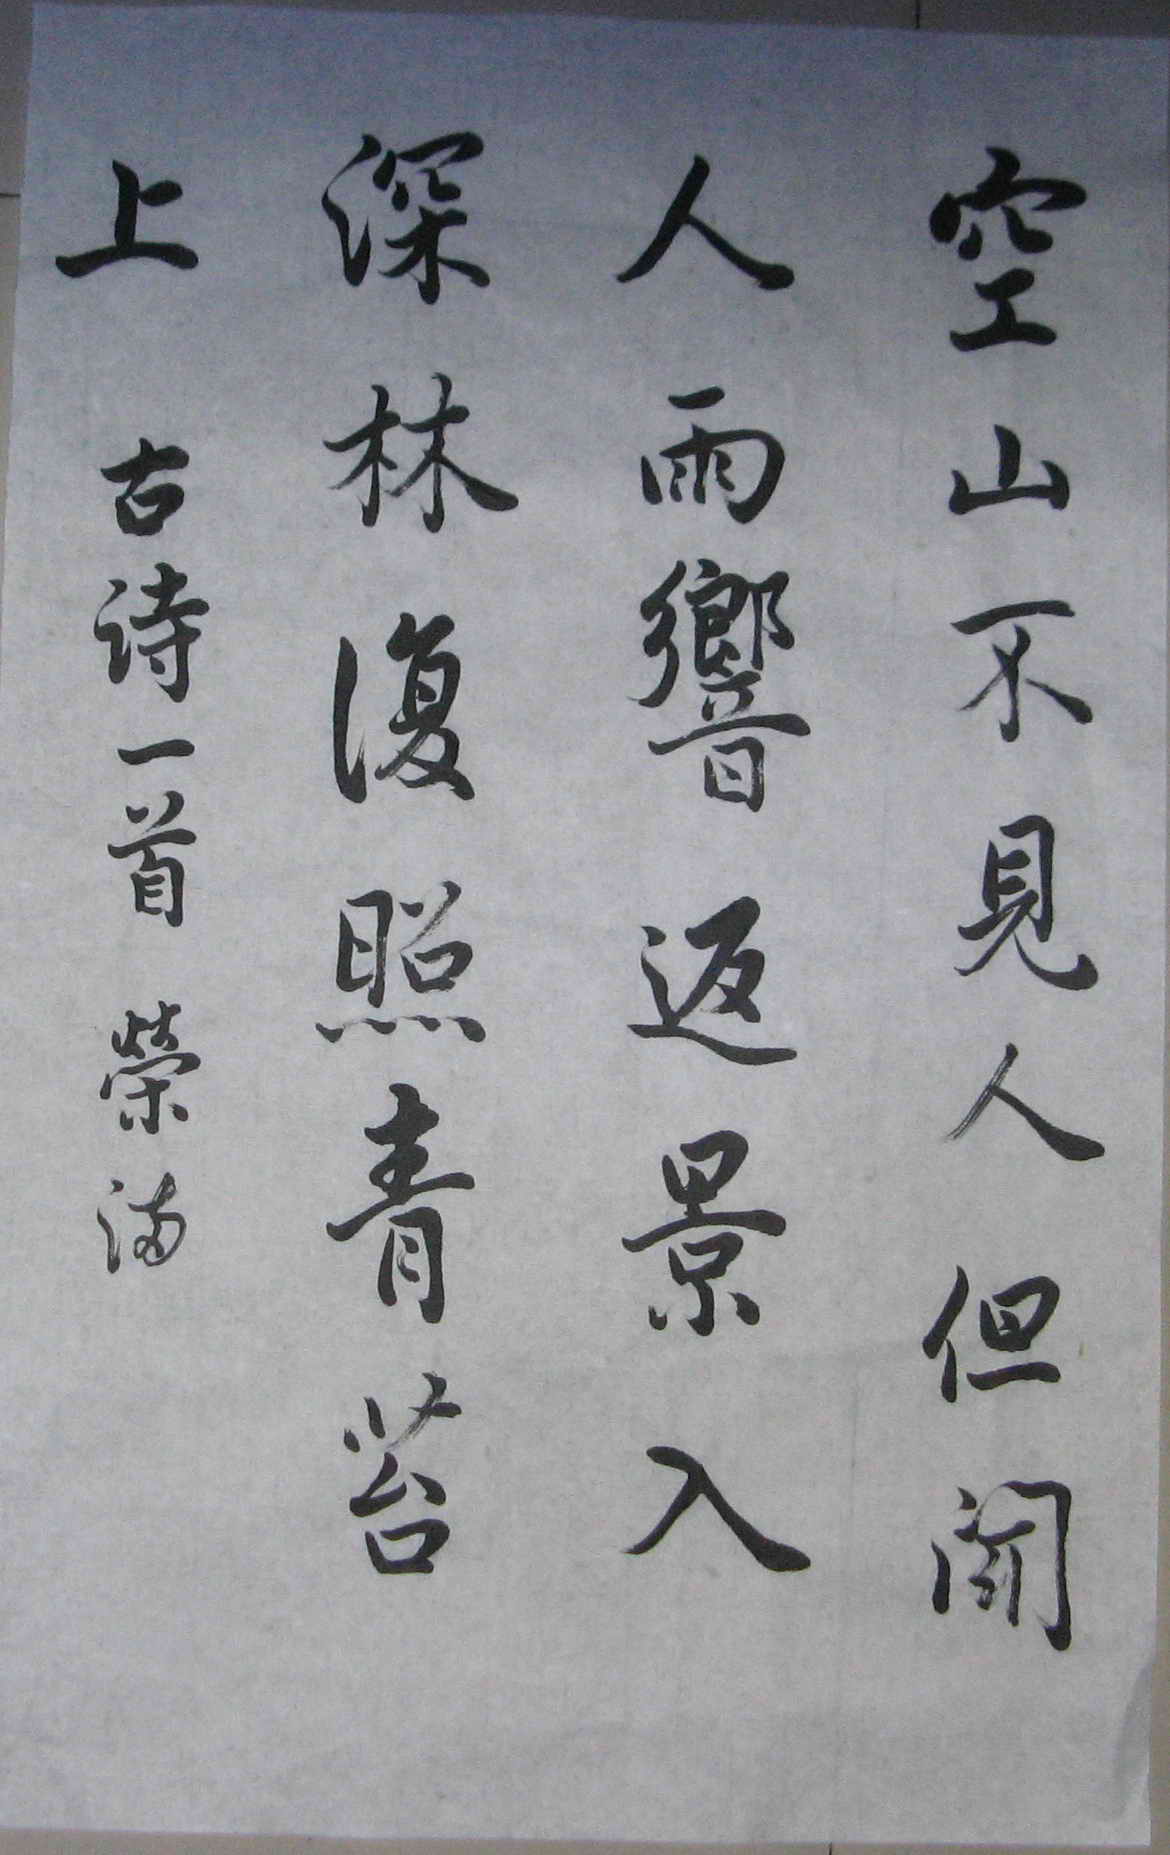 空山不見人但聞
人雨響返景入
深林復照青苔
上 古诗一首 榮